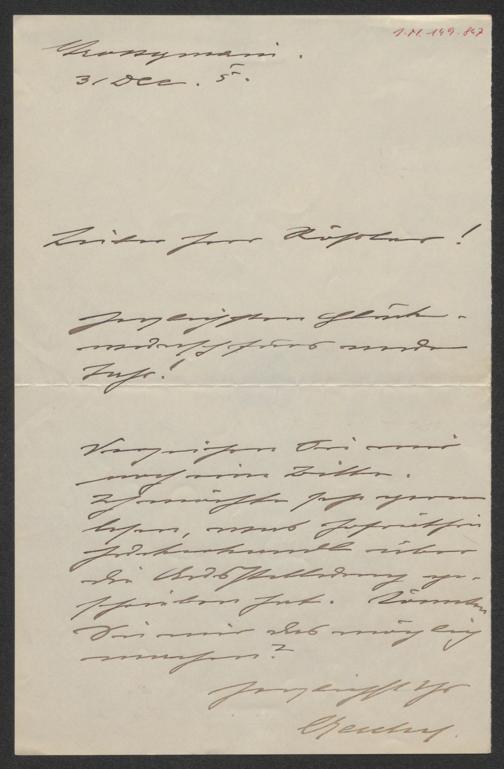 1.M.149.847
31 Dec. 5.
Lieber Herr Rößler!
Herzlichsten Glück-
wunsch fürs neue
Jahr!
Verzeihen Sie mir
noch eine Bitte.
Ich möchte sehr gern
lesen, was Hofrätin
Zuckerkandl über
die Ausstellung ge-
schrieben hat. Könnten
Sie mir das möglich
machen?
Herzlichst Ihr